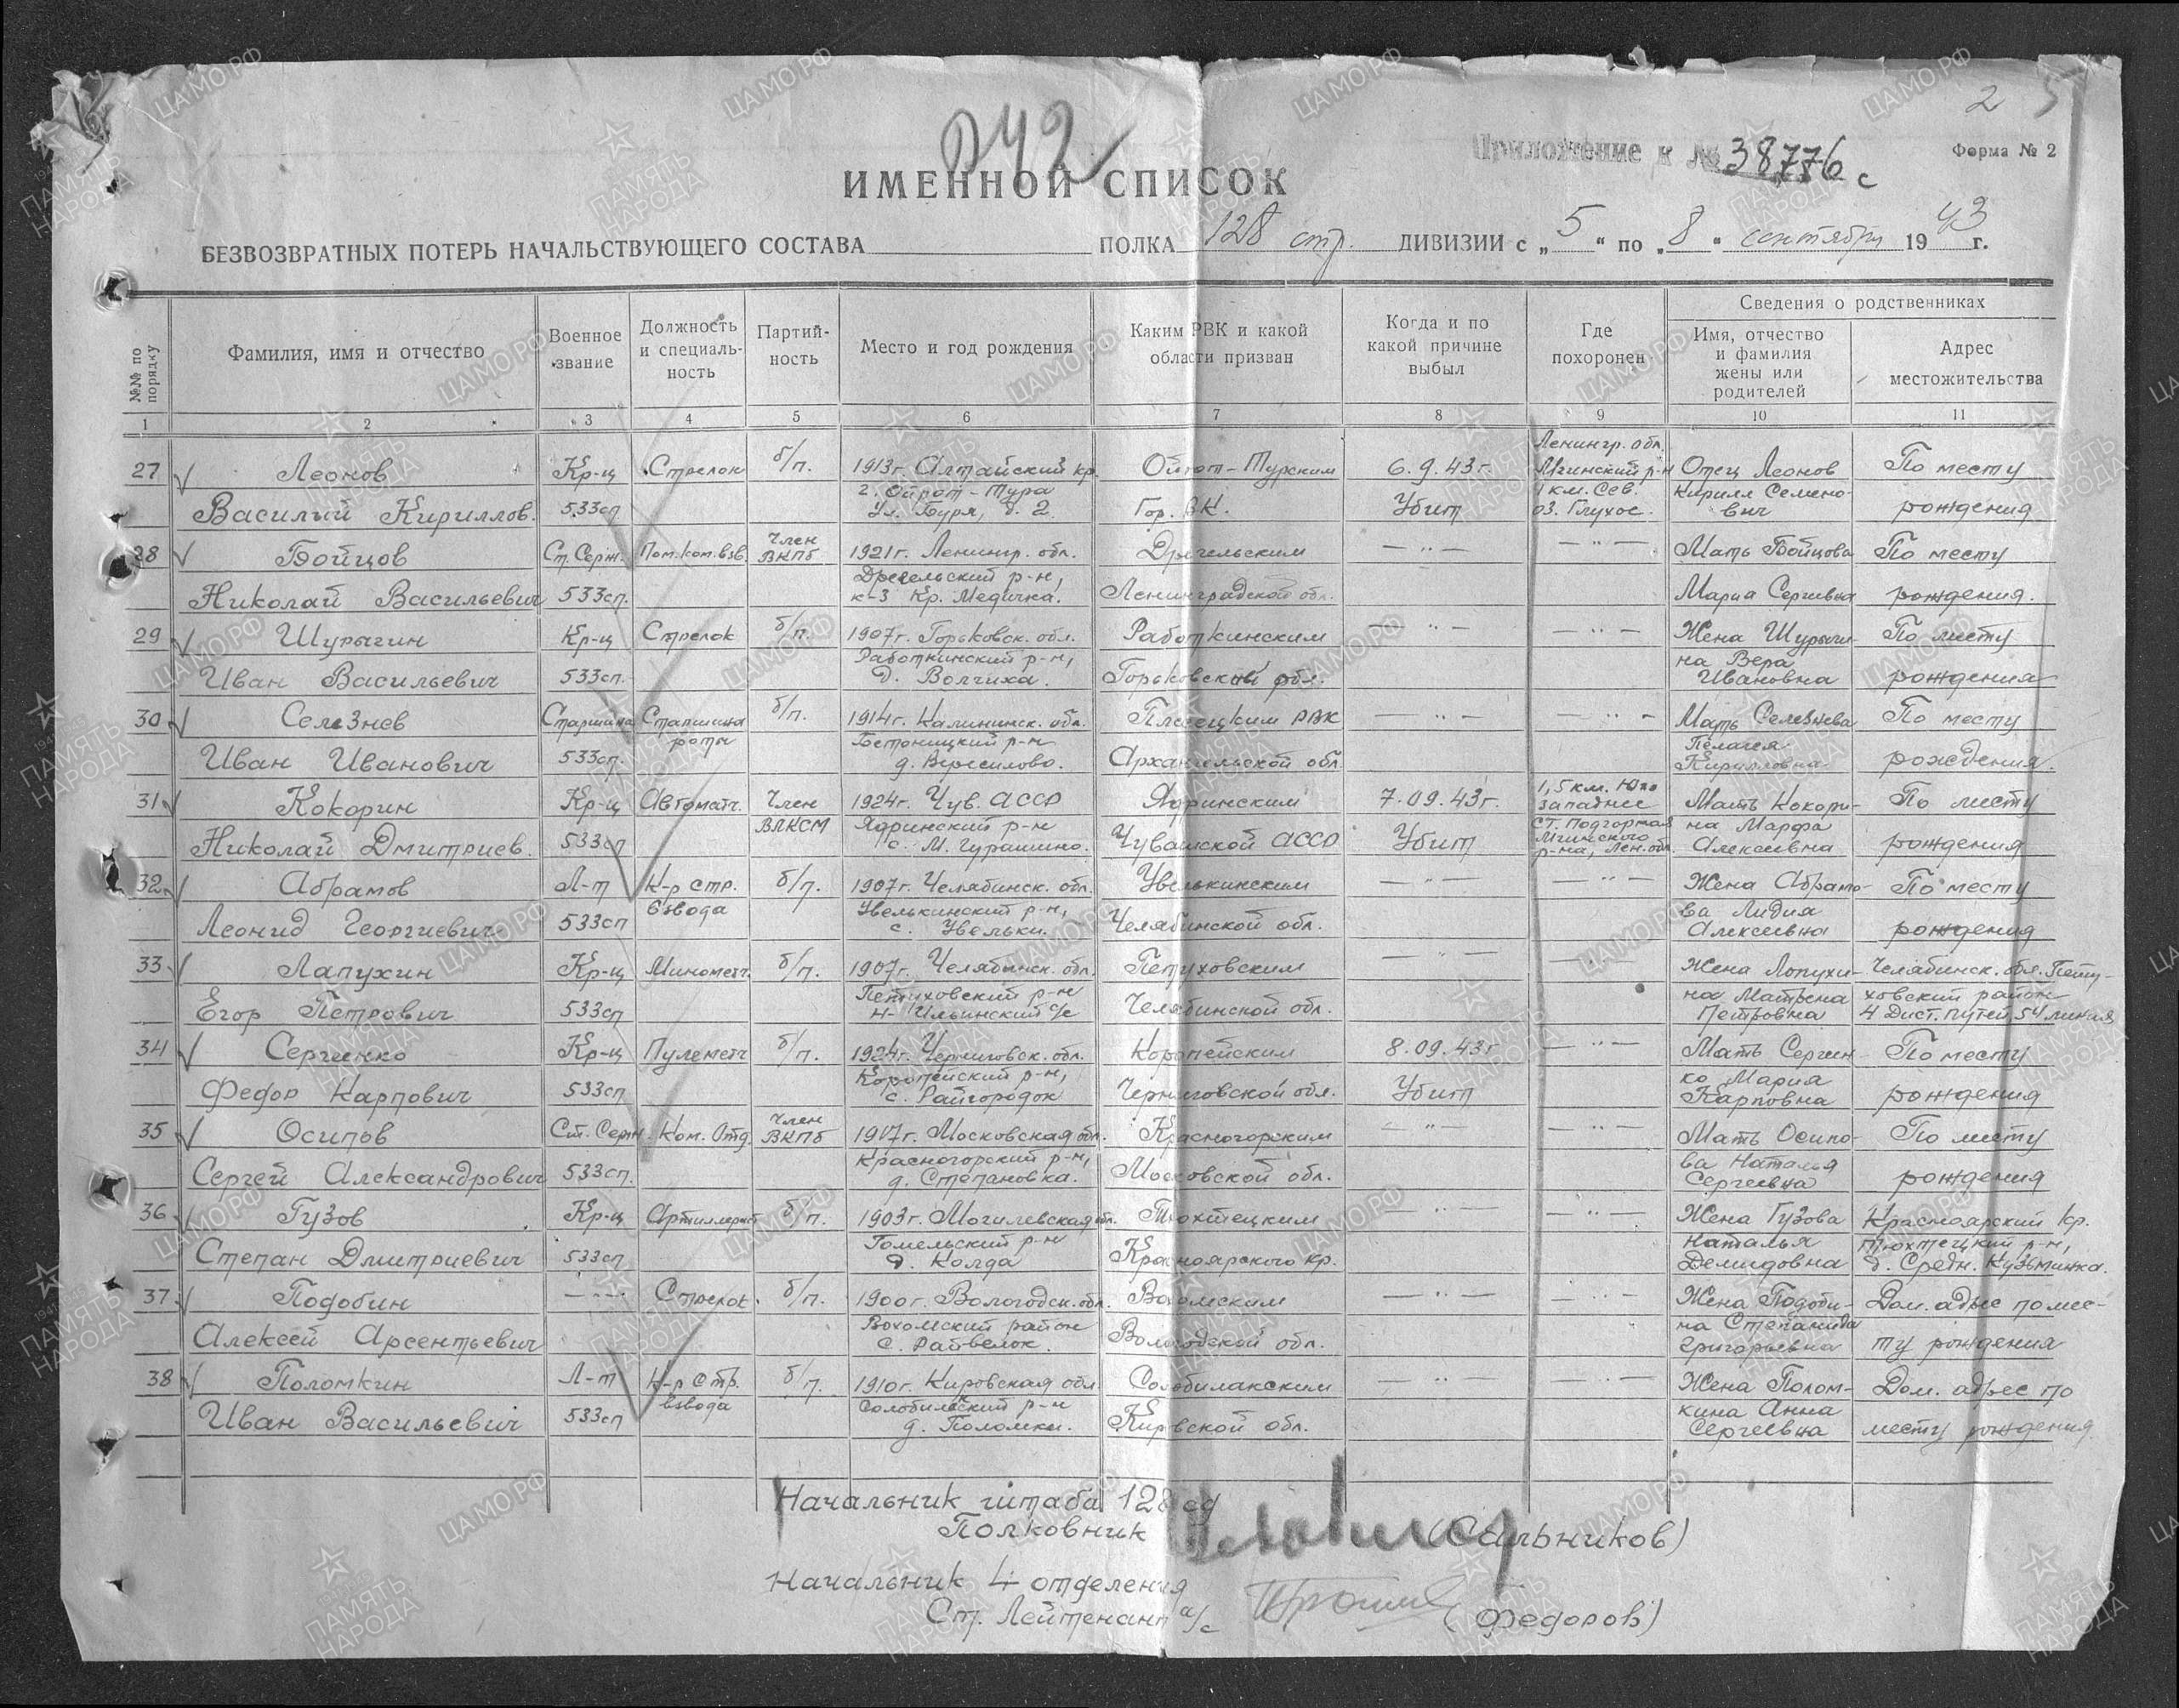 2
242
Приложение к № 38776 с
Форма № 2
ИМЕННОЙ СПИСОК
БЕЗВОЗВРАТНЫХ ПОТЕРЬ НАЧАЛЬСТВУЮЩЕГО СОСТАВА ПОЛКА 128 стр. ДИВИЗИИ с „5“ по „8“ сентября 1943 г.
№№ по порядку
Фамилия, имя и отчество
Военное звание
Должность и специальность
Партийность
Место и год рождения
Каким РВК и какой области призван
Когда и по какой причине выбыл
Где похоронен
Сведения о родственниках
Имя, отчество и фамилия жены или родителей
Адрес местожительства
1 2 3 4 5 6 7 8 9 10 11
Ленингр. обл.
27 Леонов Кр-ц Стрелок б/п. 1913г. Алтайский кр. Ойрот-Турским 6.9.43г. Мгинский р-н Отец Леонов По месту
г. Ойрот-Тура 1 км. Сев. Кирилл Семено-
Василий Кириллов. 533сп Ул. Буря, д. 2. Гор. ВК. Убит оз. Глухое. вич рождения
28 Бойцов Ст. Серж. Пом. ком. взв. Член ВКПб 1921г. Ленингр. обл. Дрегельским —"— —"— Мать Бойцова По месту
Дрегельский р-н,
Николай Васильевич 533сп. к-з Кр. Медичка. Ленинградской обл. Мария Сергеевна рождения.
29 Шурыгин Кр-ц Стрелок б/п. 1907г. Горьковск. обл. Работкинским —"— —"— Жена Шурыги- По месту
Работкинский р-н, на Вера
Иван Васильевич 533сп. д. Волчиха. Горьковской обл. Ивановна рождения
30 Селезнев Старшина Старшина б/п. 1914г. Калининск. обл. Плесецким РВК —"— —"— Мать Селезнева По месту
роты р-н Пелагея
Иван Иванович 533сп. д. Вересилово. Архангельской обл. Кирилловна рождения.
31 Кокорин Кр-ц Автоматч. Член 1924г. Чув. АССР Ядринским 7.09.43г. 1,5 км. Юго западнее Мать Кокори- По месту
ВЛКСМ Ядринский р-н ст. Подгорная на Марфа
Николай Дмитриев. 533сп с. М. Чурашино. Чувашской АССР Убит Мгинского р-на, Лен. обл. Алексеевна рождения
32 Абрамов Л-т К-р стр. б/п. 1907г. Челябинск. обл. Увелькинским —"— —"— Жена Абрамо- По месту
взвода Увелькинский р-н, ва Лидия
Леонид Георгиевич 533сп с. Увельки. Челябинской обл. Алексеевна рождения
33 Лапухин Кр-ц Минометч. б/п. 1907г. Челябинск. обл. Петуховским —"— —"— Жена Лопухи- Челябинск. обл. Пету-
Петуховский р-н на Матрена ховский район
Егор Петрович 533сп Н-Ильинский с/с Челябинской обл. Петровна 4 Дист. путей, 54 линия
34 Сергиенко Кр-ц Пулеметч б/п. 1924г. Черниговск. обл. Коропейским 8.09.43г —"— Мать Сергиен- По месту
Коропейский р-н, ко Мария
Федор Карпович 533сп с. Райгородок Черниговской обл. Убит Карповна рождения
35 Осипов Ст. Серж. Ком. Отд. Член ВКПб 1917г. Московская обл. Красногорским —"— —"— Мать Осипо- По месту
Красногорский р-н, ва Наталья
Сергей Александрович 533сп. д. Степановка. Московской обл. Сергеевна рождения
36 Гузов Кр-ц Артиллерист б/п. 1903г. Могилевская обл. Тюхтецким —"— —"— Жена Гузова Красноярский кр.
Гомельский р-н Наталья Тюхтецкий р-н,
Степан Дмитриевич 533сп д. Колда Красноярского кр. Демидовна д. Средн. Кузьминка.
37 Подобин —"— Стрелок. б/п. 1900г. Вологодск. обл. Вохомским —"— —"— Жена Подоби- Дом. адрес по мес-
Вохомский район на Степанида
Алексей Арсентьевич Вологодской обл. Григорьевна ту рождения
38 Поломкин Л-т К-р Стр. б/п. 1910г. Кировская обл. —"— —"— Жена Полом- Дом. адрес по
взвода р-н кина Анна
Иван Васильевич 533сп д. Поломки. Кировской обл. Сергеевна месту рождения
Начальник штаба 128 сд
Полковник (Сальников)
Начальник 4 отделения
Ст. Лейтенант а/с (Федоров)
ЦАМО РФ
ПАМЯТЬ НАРОДА
1941-1945